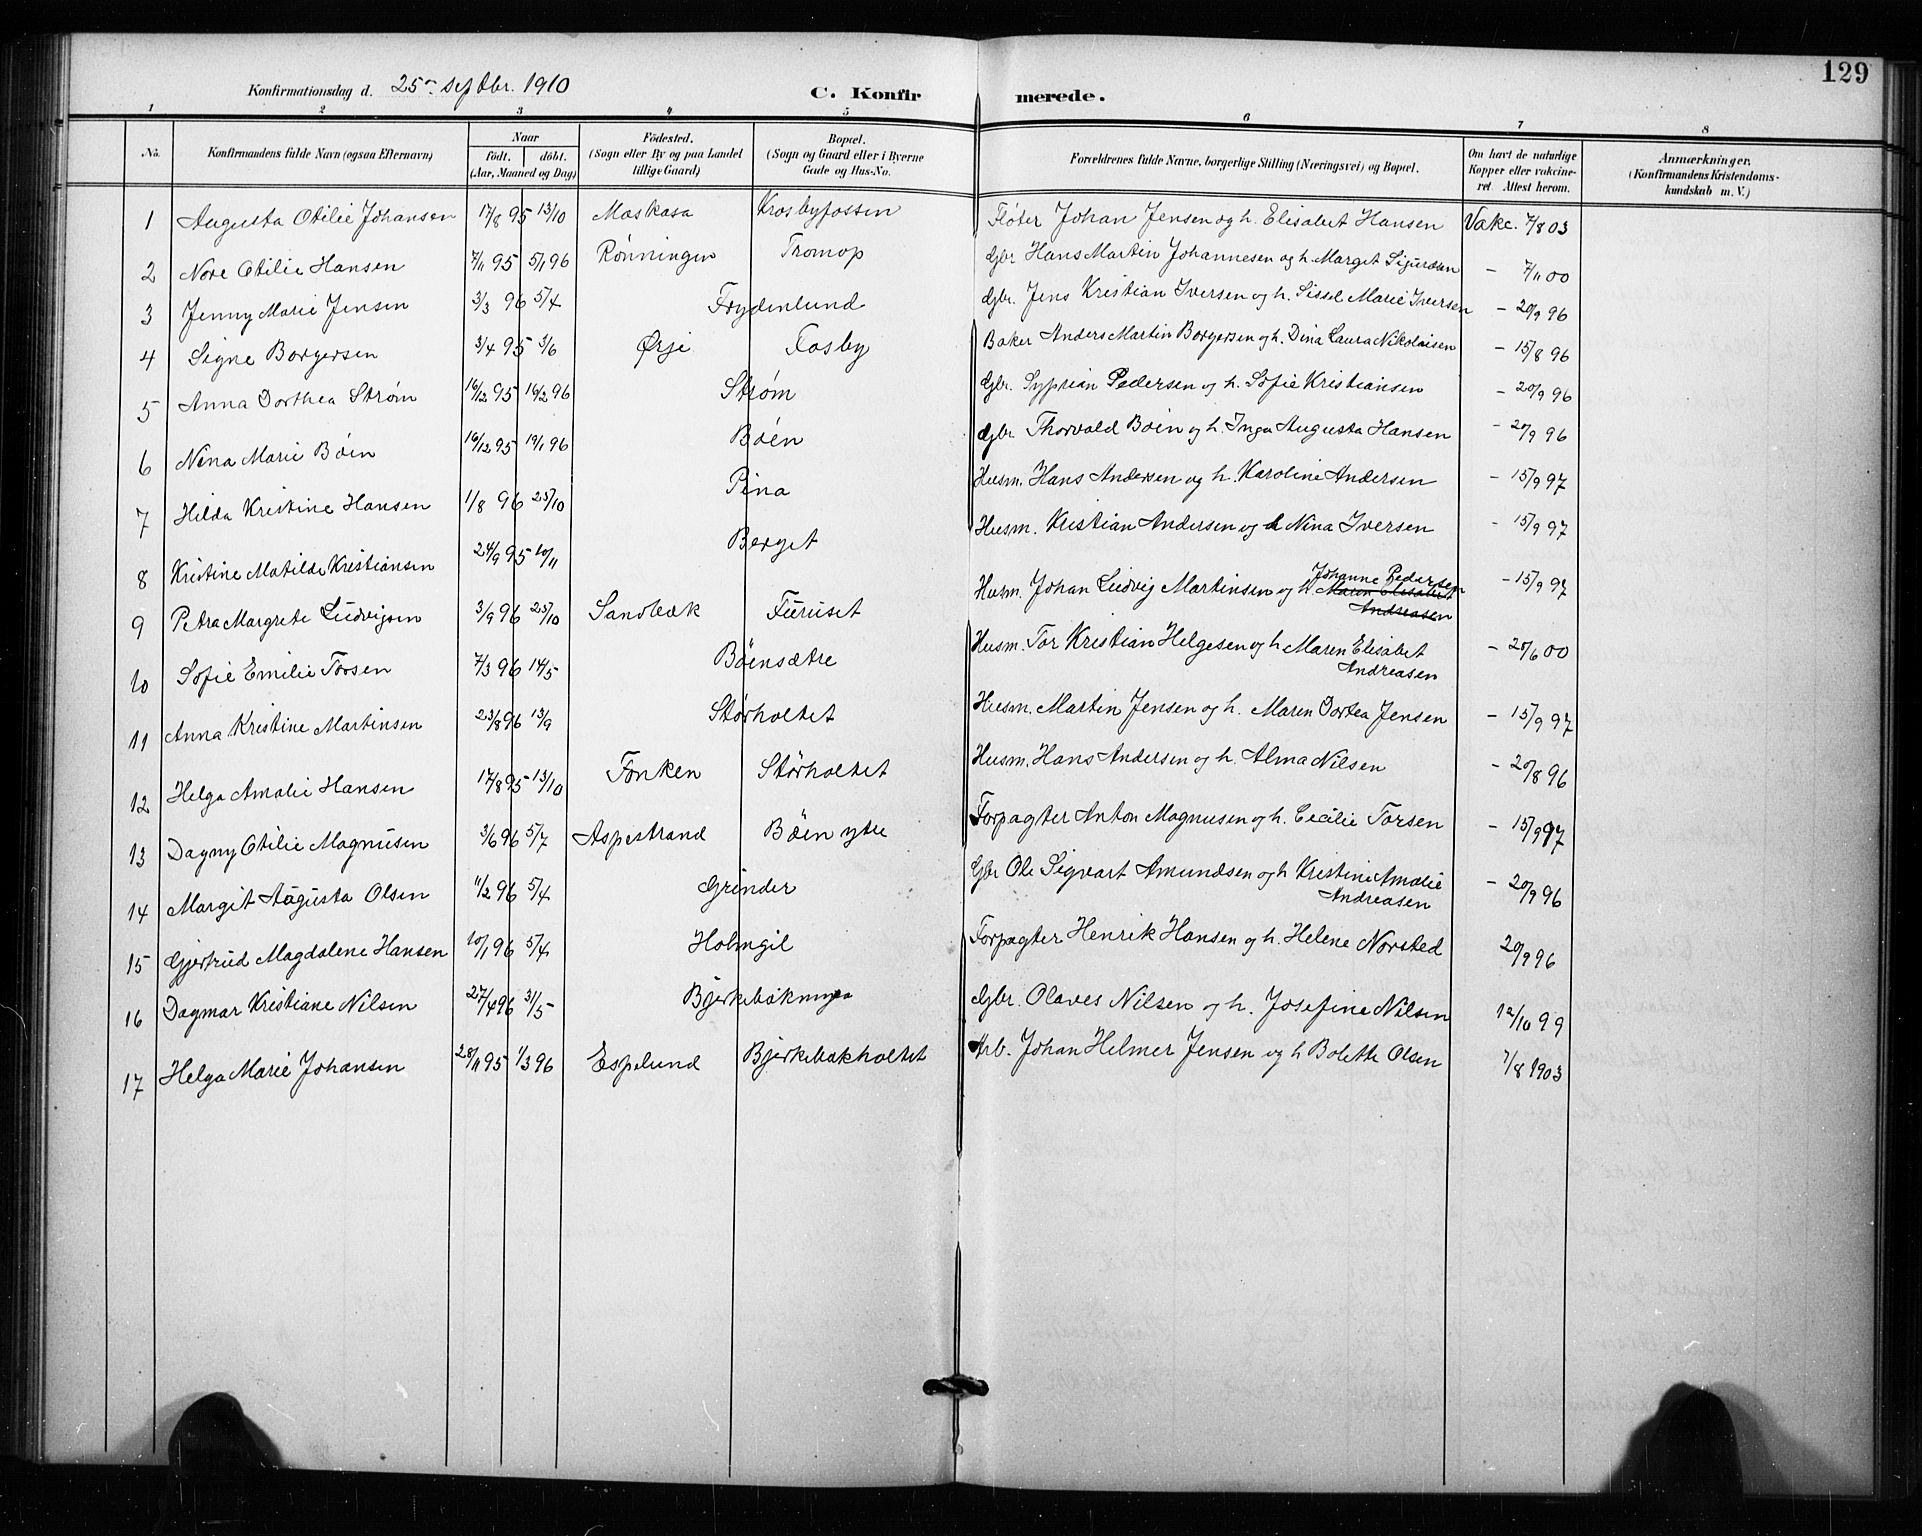 129
Konfirmationsdag d. 25de septbr. 1910
C. Konfirmerede.
1 2 3 4 5 6 7 8
No. Konfirmandens fulde Navn (ogsaa Efternavn) Naar födt. döbt. (Aar, Maaned og Dag) Födested. (Sogn eller By og paa Landet tillige Gaard) Bopæl. (Sogn og Gaard eller i Byerne Gade og Hus-No. Forældrenes fulde Navne, borgerlige Stilling (Næringsvei) og Bopæl. Om havt de naturlige Kopper eller vakcineret. Attest herom. Anmærkninger. (Konfirmandens Kristendomskundskab m. V.)
1 Augusta Otilie Johansen 17/8 95 13/10 Moskasa Krosbyfossen Fløter Johan Jensen og h. Elisabet Hansen Vakc. 7/8 03
2 Nore Otilie Hansen 7/11 95 5/1 96 Rønningen Tromop Gbr. Hans Martin Johannesen og h. Marget Sigurdsen – 7/11 00
3 Jenny Marie Jensen 3/3 96 5/4 Frydenlund Gbr. Jens Kristian Iversen og h. Sissel Marie Iversen – 20/9 96
4 Signe Borgersen 3/4 95 3/6 Ørje Fosby Baker Anders Martin Borgersen og h. Dina Laura Nikolaisen – 15/8 96
5 Anna Dorthea Strøm 16/12 95 16/2 96 Strøm Gbr. Syprian Pedersen og h. Sofie Kristiansen – 20/9 96
6 Nina Marie Böen 16/12 95 19/1 96 Böén Gbr. Thorvald Böen og h. Inga Augusta Hansen – 20/9 96
7 Hilda Kristine Hansen 1/8 96 25/10 Pina Husm. Hans Andersen og h. Karoline Andersen – 15/9 97
8 Kristine Matilde Kristiansen 24/9 95 10/11 Berget Husm. Kristian Andersen og h Nina Iversen – 15/9 97
9 Petra Margrete Ludvigsen 3/9 96 25/10 Sandbæk Furuset Husm. Johan Ludvig Martinsen og h Johanne Pedersen Maren Elisabet Andreasen – 15/9 97
10 Sofie Emilie Torsen 7/3 96 14/5 Böensætre Husm. Tor Kristian Helgesen og h Maren Elisabet Andreasen – 25/6 00
11 Anna Kristine Martinsen 23/8 96 13/9 Störholtet Husm. Martin Jensen og h. Maren Dortea Jensen – 15/9 97
12 Helga Amalie Hansen 17/8 95 13/10 Fonken Störholtet Husm. Hans Andersen og h. Alma Nilsen – 20/8 96
13 Dagny Otilie Magnusen 3/6 96 5/7 Aspestrand Böen ytre Forpagter Anton Magnusen og h. Cecilie Torsen – 15/9 97
14 Margit Augusta Olsen 11/2 96 5/4 Grinder Gbr Ole Sigvart Amundsen og h Kristine Amalie Andreasen – 20/9 96
15 Gjertrud Magdalene Hansen 10/1 96 5/4 Holmgil Forpagter Henrik Hansen og h. Helene Norsted 20/9 96
16 Dagmar Kristiane Nilsen 27/4 96 31/5 Gbr. Olaves Nilsen og h. Josefine Nilsen 12/10 99
17 Helga Marie Johansen 28/11 95 1/3 96 Espelund Bjerkebakholtet Arb. Johan Helmer Jensen og h Bolette Olsen 7/8 1903